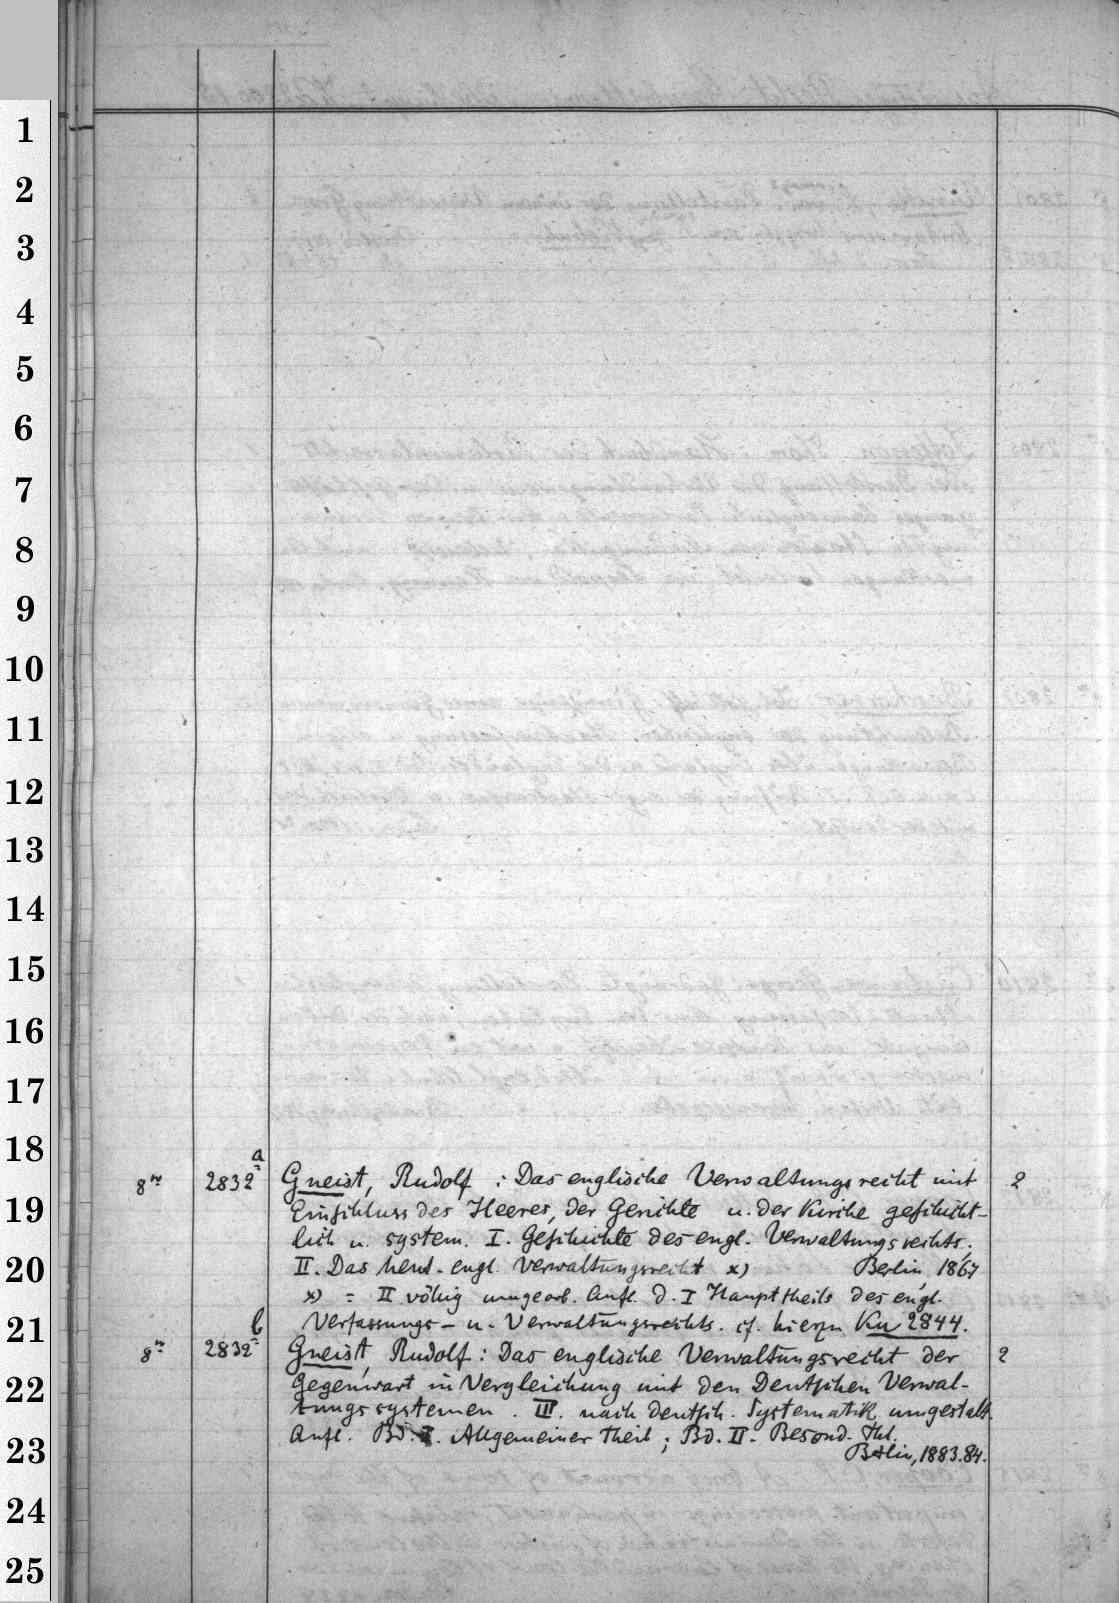 1
2
3
4
5
6
7
8
9
10
11
12
13
14
15
16
17
18
19
20
21
22
23
24
25
8° 2832 a Gneist, Rudolf : Das englische Verwaltungsrecht mit 2
Einschluss des Heeres, der Gerichte u. der Kirche geschicht-
lich u. system. I. Geschichte des engl. Verwaltungsrechts.
II. Das heut. engl. Verwaltungsrecht x) Berlin, 1867
x) = II völlig umgearb. Aufl. d. I Haupttheils des engl.
Verfassungs- u. Verwaltungsrechts. cf. hierzu Ku 2844.
8° 2832 b Gneist, Rudolf : Das englische Verwaltungsrecht der 2
Gegenwart in Vergleichung mit den Deutschen Verwal-
tungssystemen. III. nach deutsch. Systematik umgestalt.
Aufl. Bd. I. Allgemeiner Theil ; Bd. II. Besond. Thl.
Berlin, 1883.84.